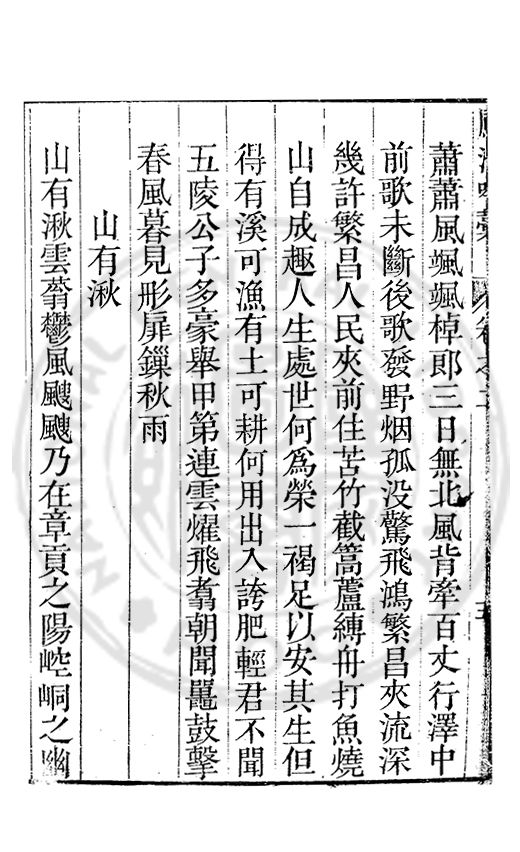 蕭蕭風颯颯棹郎三日無北風背牽百丈行澤中
前歌未斷後歌發野烟孤没驚飛鴻繁昌夾流深
幾許繁昌人民夾前住苦竹截篙蘆縛舟打魚燒
山自成趣人生處世何爲榮一褐足以安其生但
得有溪可漁有土可耕何用出入誇肥輕君不聞
五陵公子多豪舉甲第連雲燿飛翥朝聞鼉鼓擊
春風暮見形扉鏁秋雨
山有湫
山有湫雲蓊鬱風颼颼乃在章貢之陽崆峒之幽